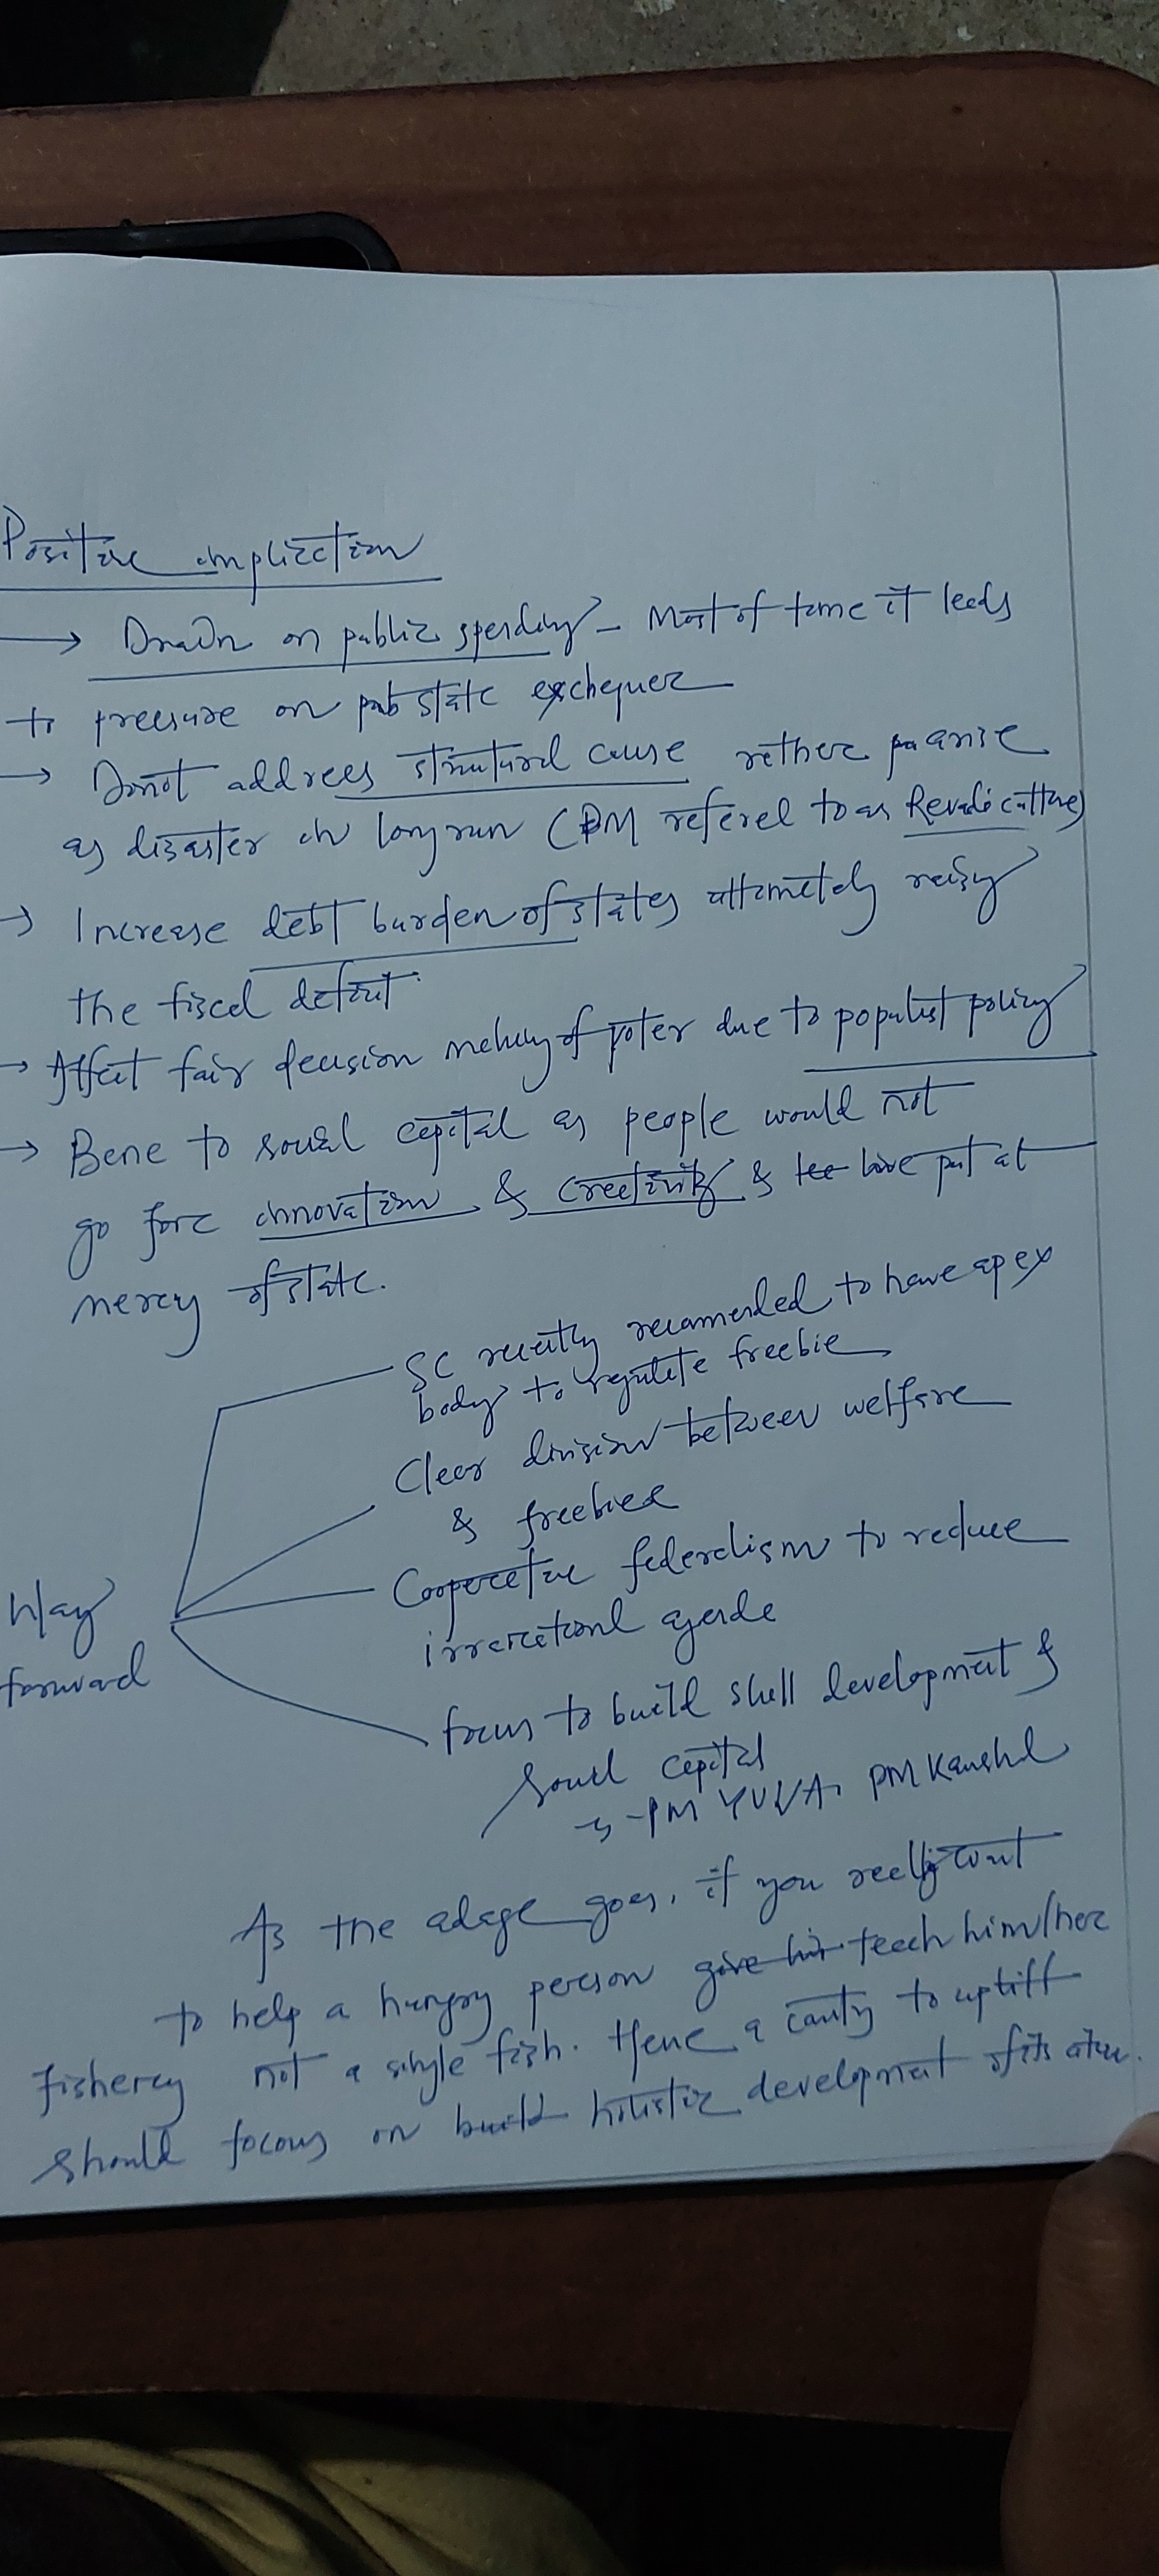 Positive implication
→ Drain on public spending - Most of time it leads
to pressure on state exchequer
→ Donot address structural cause rather arise
as disaster in long run (PM referel to as Revadi culture)
→ Increase debt burden of states ultimately
the fiscal
→ Affect fair decision making of voter due to populist policy
→ Bene to social capital as people would not
go for innovation & creativity & live put at
mercy of state.
SC recently recommended to have apex
body to regulate freebie
Clear division between welfare
& freebies
Cooperative federalism to reduce
irrational agenda
Way
forward
focus to build skill development &
Social capital
→ PM YUVA, PM Kaushal
As the adage goes, if you really want
to help a hungry person give him teach him/her
fishery not a single fish. Hence a to uplift
should focus on build holistic development of its